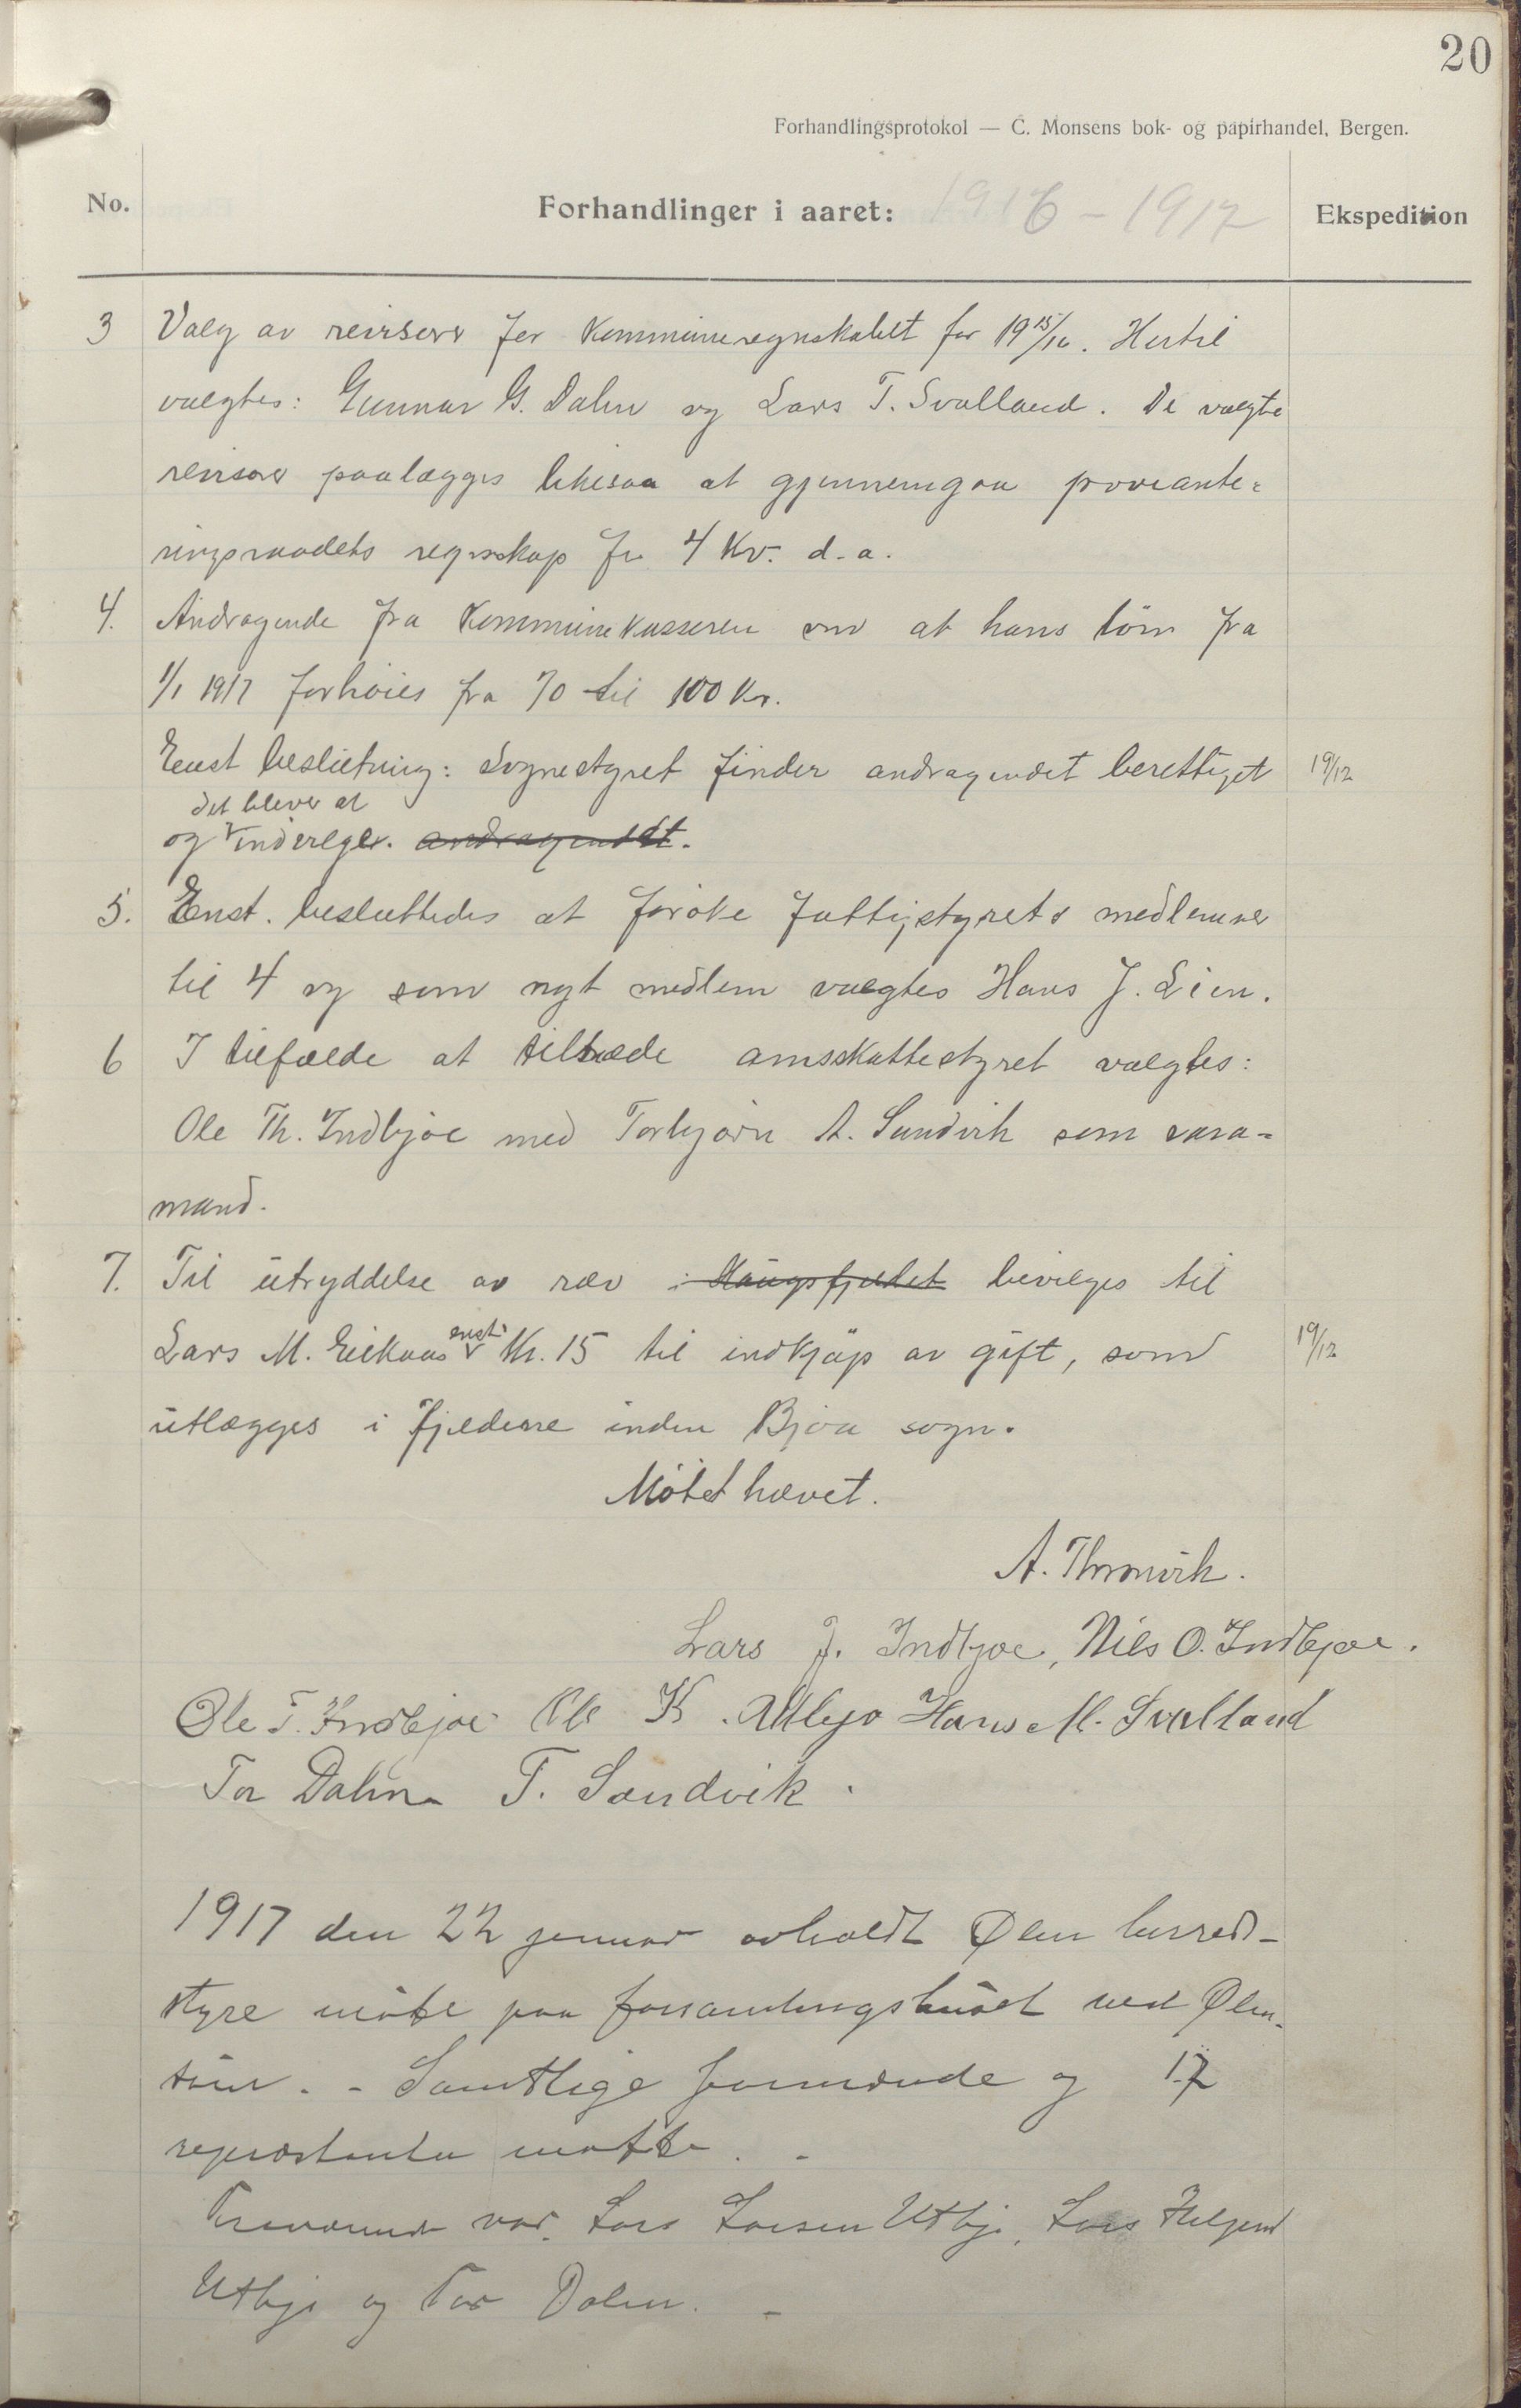 20
Forhandlingsprotokol — C. Monsens bok- og papirhandel, Bergen.
No. Forhandlinger i aaret: 1916 - 1917 Ekspedition
3 Valg av revisorer for Kommuneregnskabet for 19 15/16. Hertil
valgtes: Gunnar G. Dalen og Lars T. Svolland. De valgte
revisorer paalægges likesaa at gjennemgaa proviante-
ringsraadets regnskap for 4 Kv. d.a.
4. Andragende fra Kommunekasseren om at hans løn fra
1/1 1917 forhøies fra 70 til 100 Kr.
Enst beslutning: Sognestyret finder andragendet berettiget 19/12
det blever at
og indvilger. andragendet.
5. Enst. besluttedes at forøke fattigstyrets medlemmer
til 4 og som nyt medlem valgtes Hans J. Lien.
6 I tilfælde at tiltræde amsskattestyret valgtes:
Ole Th. Indbjoe med Torbjørn A. Sandvik som vara-
mand.
7. Til utryddelse av ræv i Haugsfjeldet bevilges til
enst.
Lars M. Eikaas Kr. 15 til indkjøp av gift, som 19/12
utlægges i fjeldene inden Bjoa sogn.
Møtet hævet.
A. Thronvik.
Lars J. Indbjoe, Nils O. Indbjoe.
Ole T. Indbjoe Ole K. Utbjo Hans M. Svolland
Tor Dalen T. Sandvik.
1917 den 22 januar avholdt Ølen herreds-
styre møte paa forsamlingshuset ved Ølen-
søen. - Samtlige formænde og 17
repræsentanter møtte. -
Fraværende var Lars Larsen Utbjo, Lars Helgesen
Utbjo og Tor Dalen. -